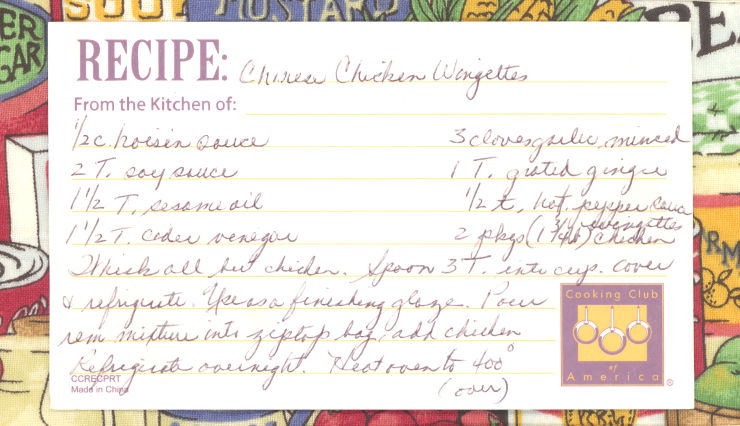 SOUP MUSTARD
RECIPE: Chinese Chicken Wingettes
From the Kitchen of:
1/2 c. hoisin sauce
2 T. soy sauce
1 1/2 T. sesame oil
1 1/2 T. cider venegar
3 cloves garlic, minced
1 T. grated ginger
1/2 t. hot pepper sauce
2 pkgs (1 3/4 lb) chicken wingettes
Whisk all but chicken. Spoon 3 T. into cup. cover
& refrigerate. Use as a finishing glaze. Pour
rem mixture into ziptop bag, add chicken
Refrigerate overnight. Heat oven to 400°
(over)
CCRECPRT
Made in China
Cooking Club
of
America ®